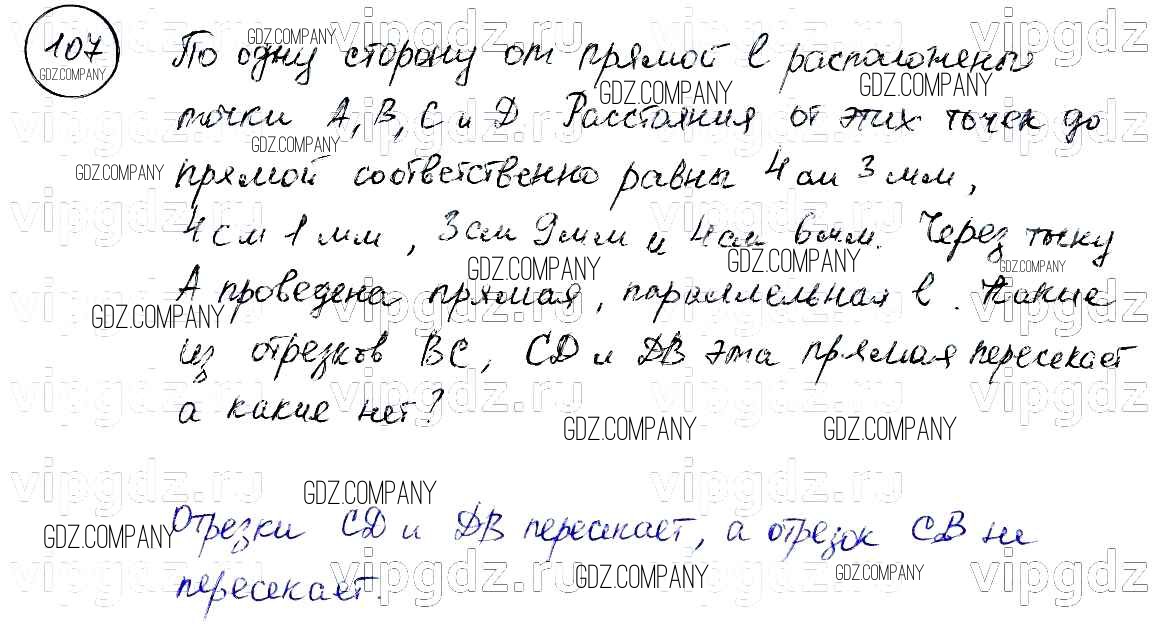 107 По одну сторону от прямой l расположены
точки A, B, C и D Расстояния от этих точек до
прямой соответственно равны 4 см 3 мм,
4 см 1 мм, 3 см 9 мм и 4 см 6 мм. Через точку
A проведена прямая, параллельная l. Какие
из отрезков BC, CD и DB эта прямая пересекает
а какие нет?
Отрезки CD и DB пересекает, а отрезок CB не
пересекает.
GDZ.COMPANY
vipgdz.ru